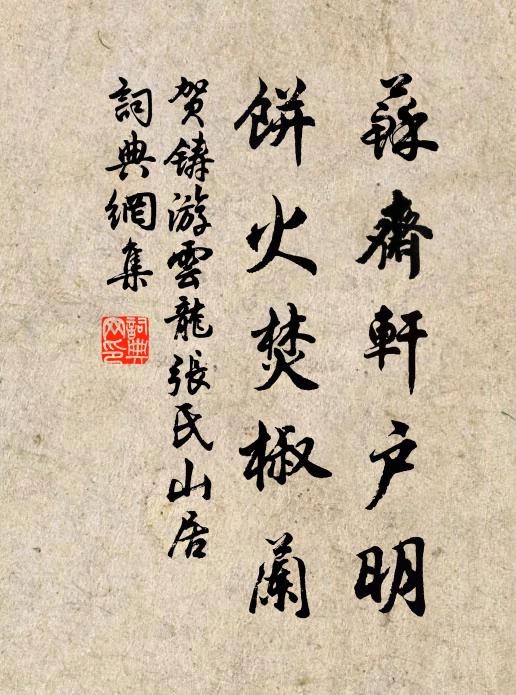 蘇齋軒户明
餅火焚椒蘭
贺鑄游雲龍張氏山居
詞典網集
詞典网印